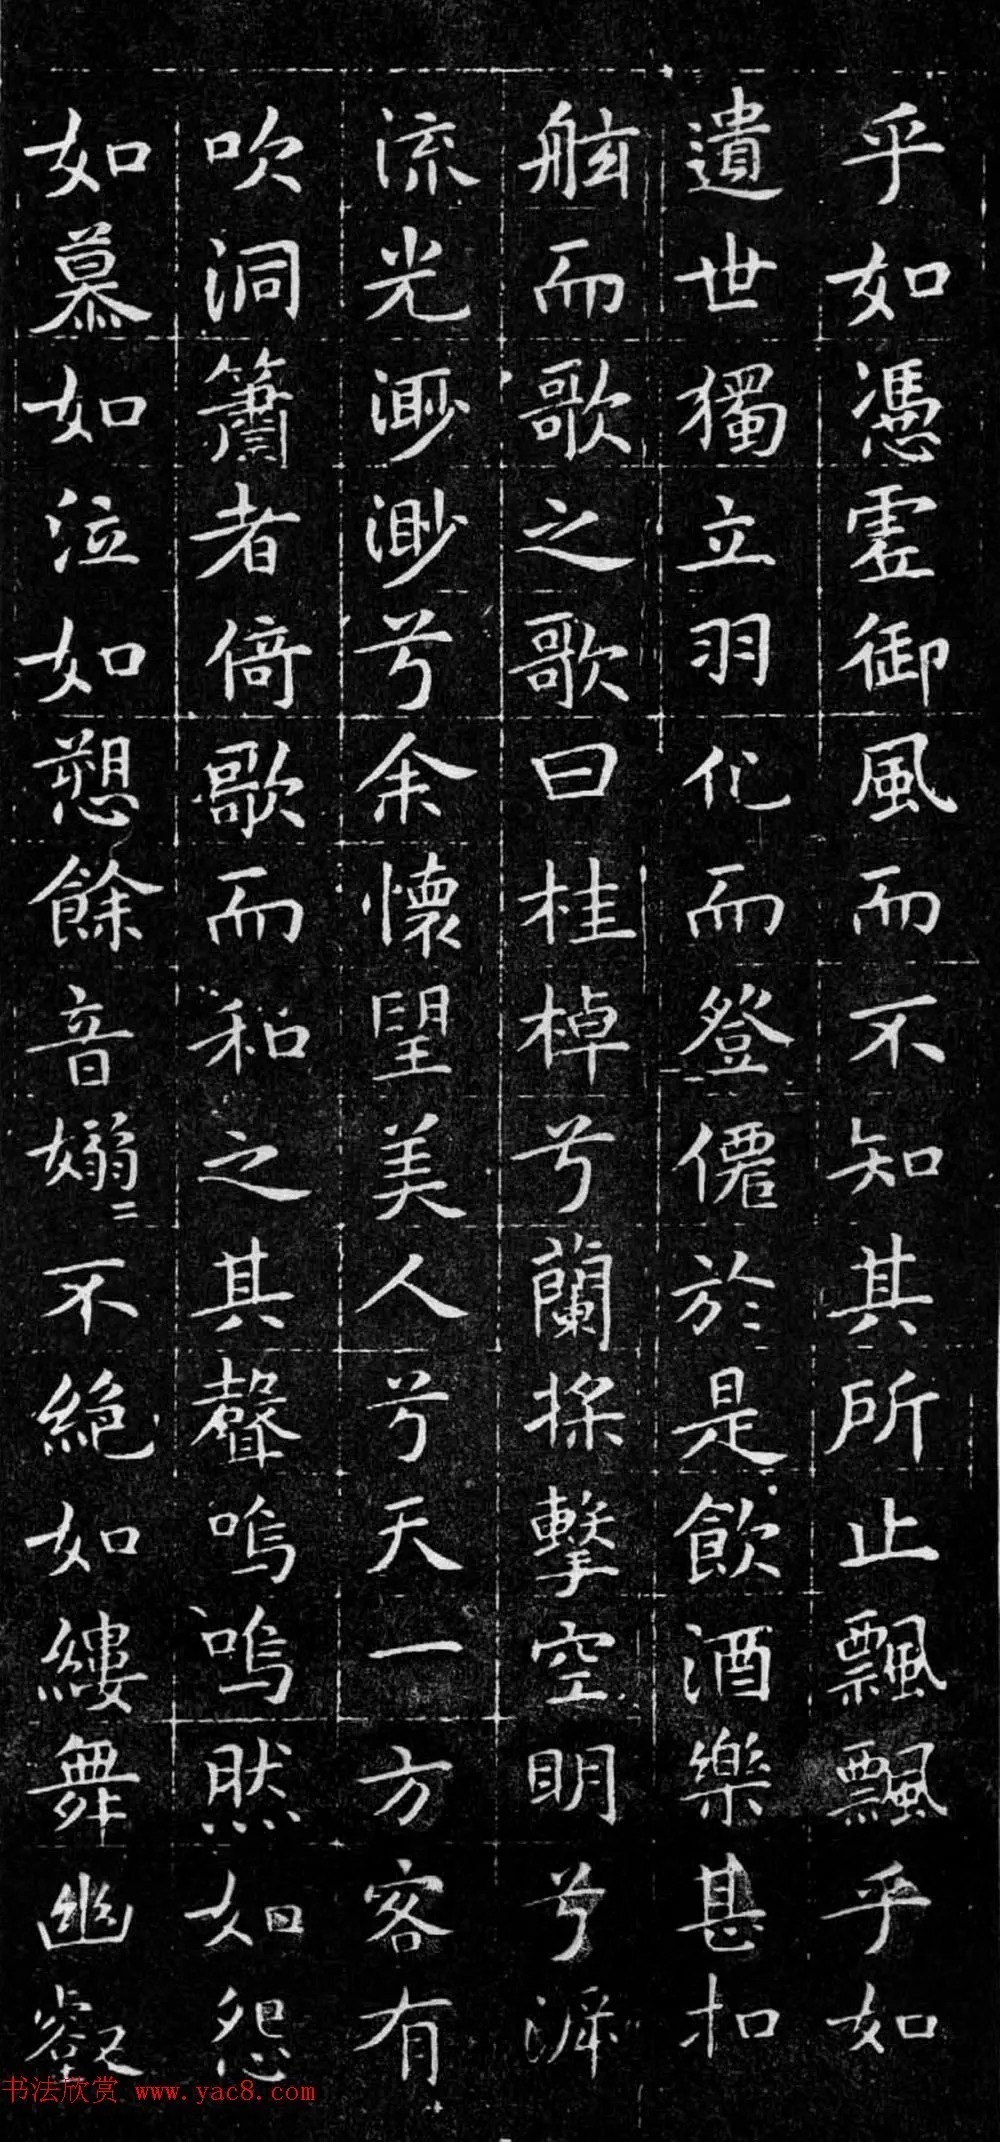 乎如憑虛御風而不知其所止飄飄乎如
遺世獨立羽化而登僊於是飲酒樂甚扣
舷而歌之歌曰桂棹兮蘭槳擊空明兮泝
流光渺渺兮余懷望美人兮天一方客有
吹洞簫者倚歌而和之其聲嗚嗚然如怨
如慕如泣如愬餘音嫋〻不絕如縷舞幽壑
书法欣赏 www.yac8.com